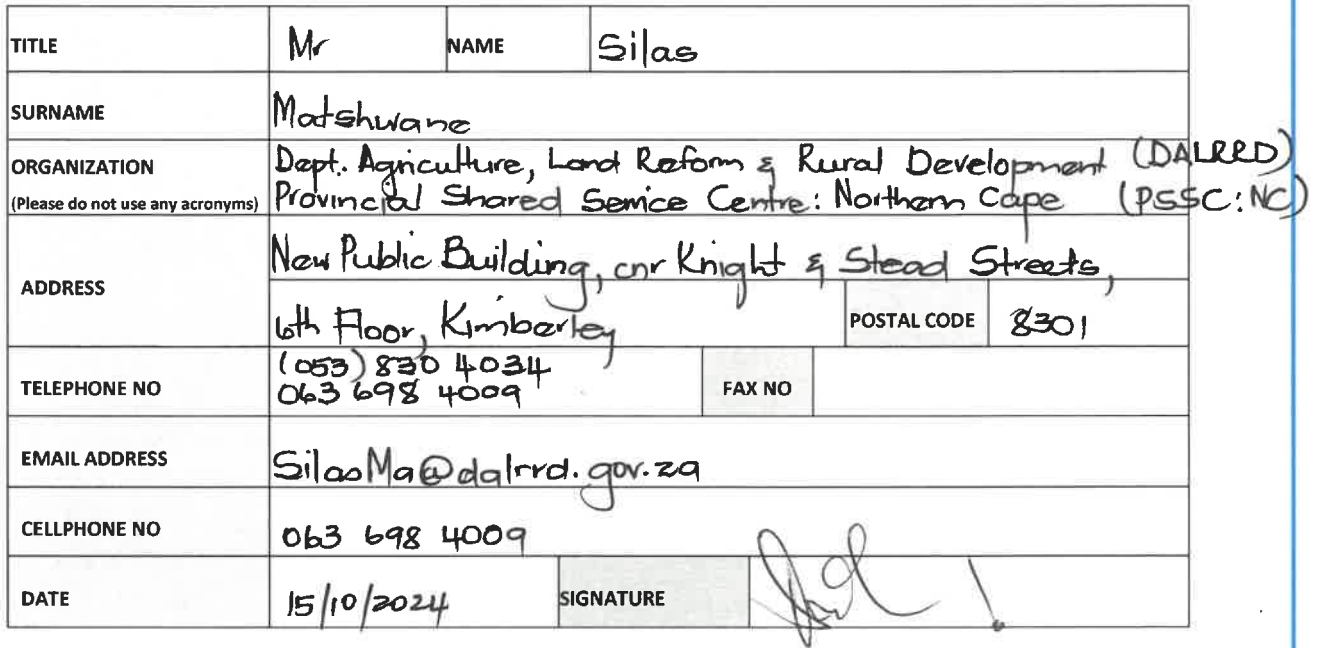 TITLE Mr NAME Silas
SURNAME Matshwane
ORGANIZATION Dept. Agriculture, Land Reform & Rural Development (DALRRD)
(Please do not use any acronyms) Provincial Shared Service Centre: Northern Cape (PSSC:NC)
ADDRESS New Public Building, cnr Knight & Stead Streets,
6th Floor, Kimberley POSTAL CODE 8301
TELEPHONE NO (053) 830 4034
063 698 4009 FAX NO
EMAIL ADDRESS SilasMa@dalrrd.gov.za
CELLPHONE NO 063 698 4009
DATE 15/10/2024 SIGNATURE